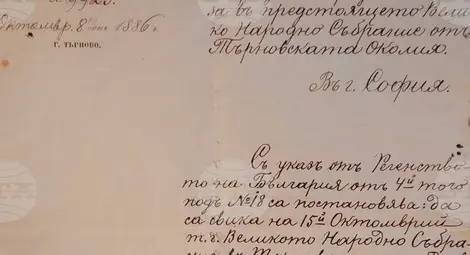 Октомвр. 8 1886 г.
г. ТЪРНОВО.
за въ предстоящето Вели-
ко Народно Събрание отъ
Търновската Околия.
Въ г. София.
Съ указъ отъ Регенство-
то на България отъ 4й того
подъ №18 са постановява: да
са свика на 15й Октомврий
т.г. Великото Народно Събра-